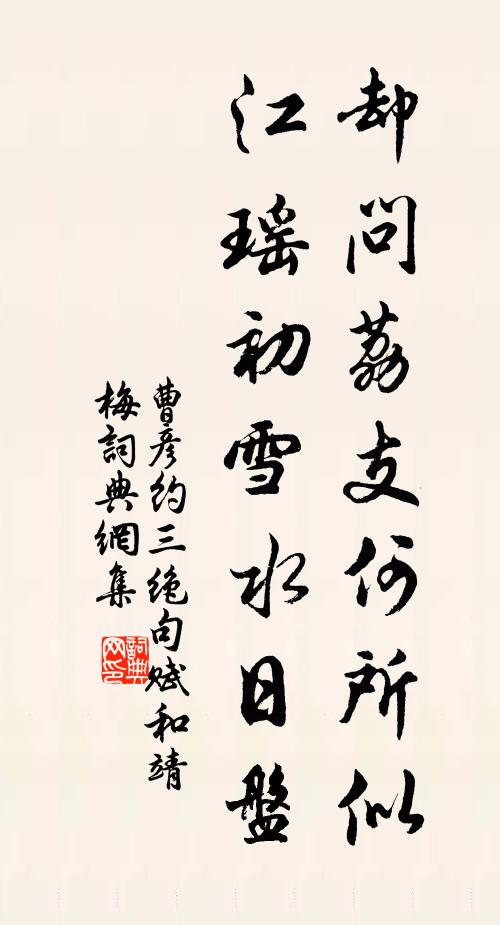 却問荔支何所似
江瑤初雪水日盤
曹彦約三絶句賦和靖
梅詞典網集
詞典
网印